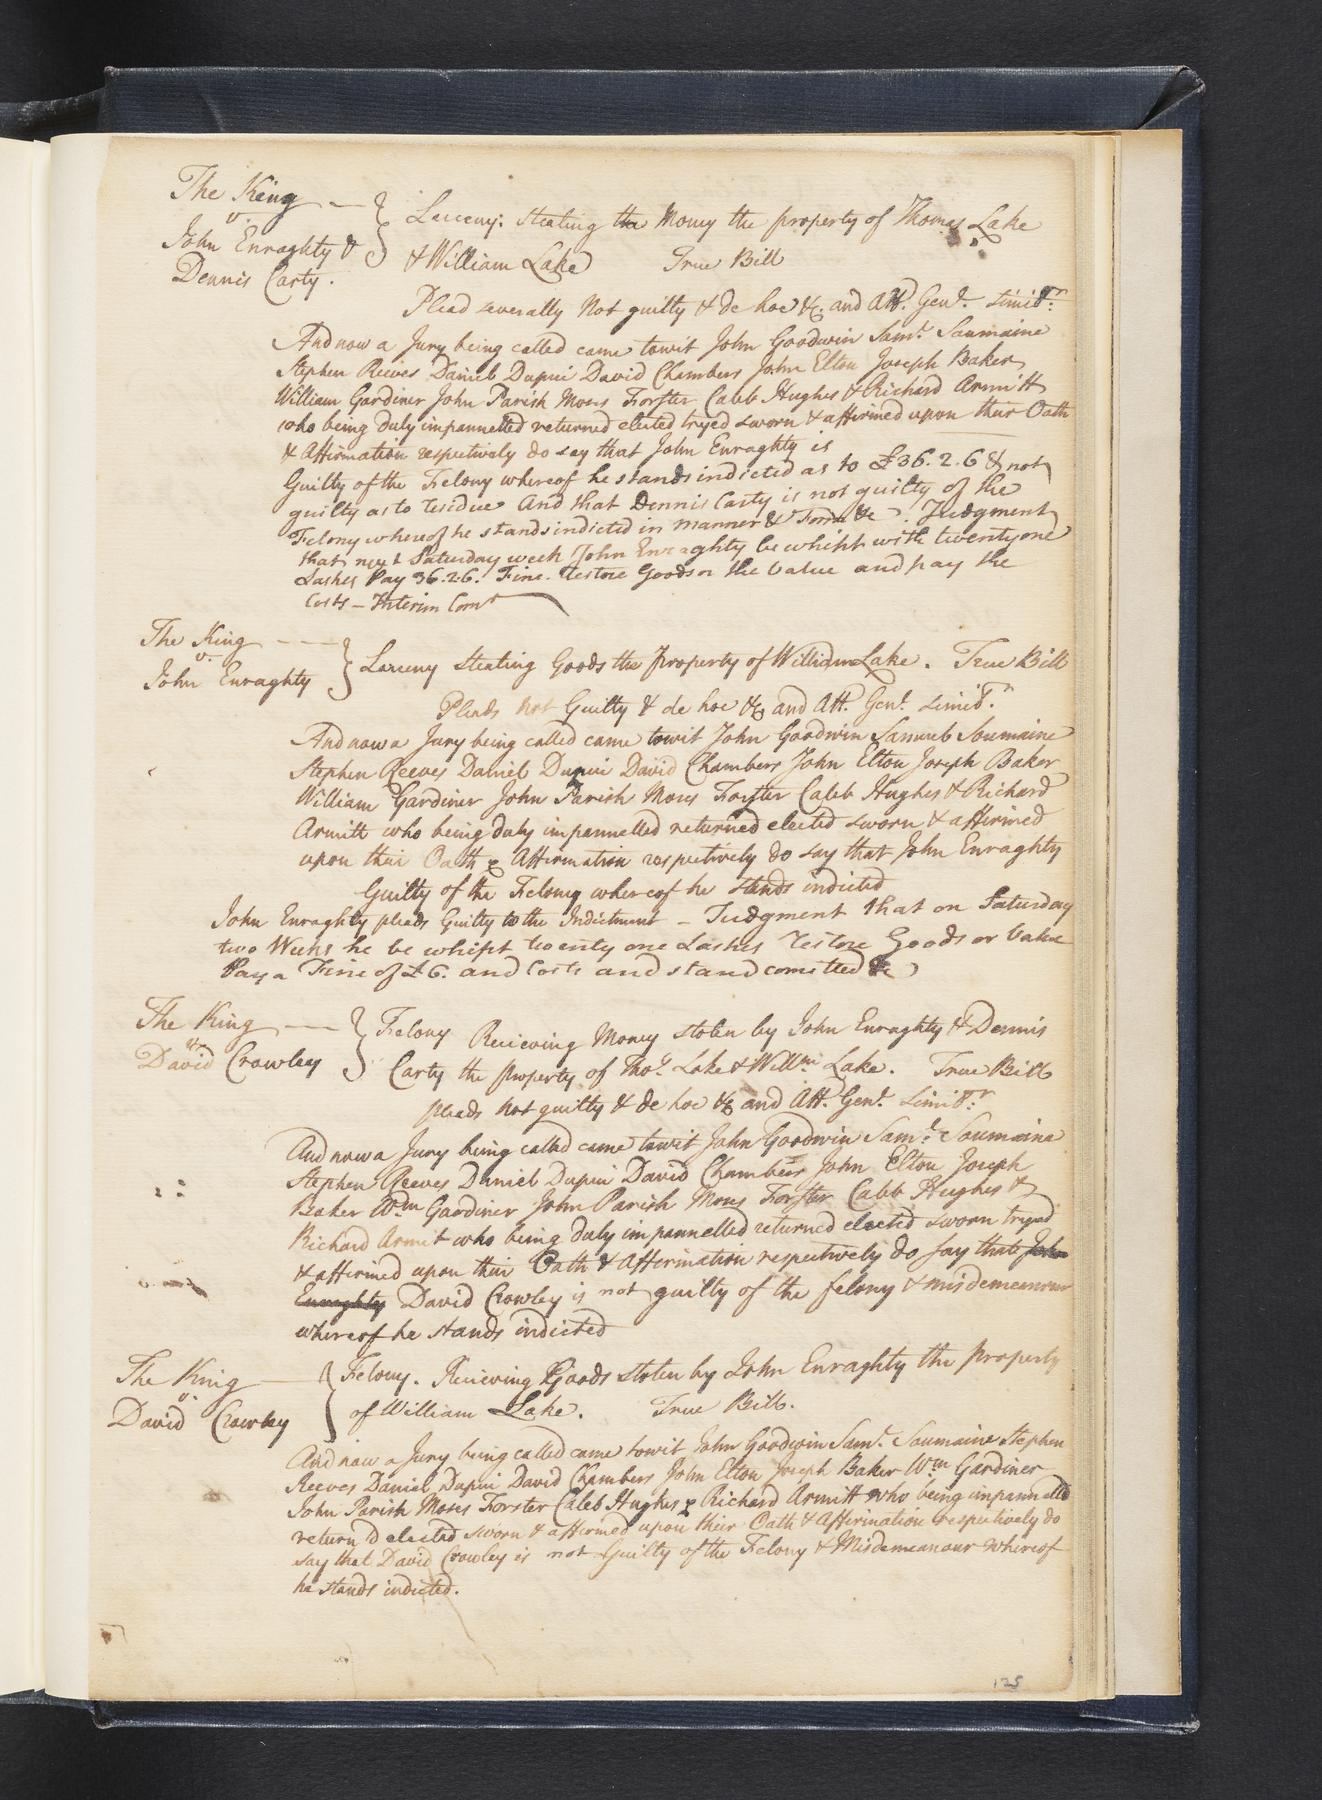 The King
v.
John Enraghty &
Dennis Carty.
Larceny: Stealing the Money the property of Thomas Lake
& William Lake True Bill
Plead severally Not guilty & de hoc &c. and Att. Genl. Simil.r
And now a Jury being called came towit John Goodwin Saml. Soumaine
Stephen Reeves Daniel Dupui David Chambers John Elton Joseph Baker
William Gardiner John Parish Moses Forster Caleb Hughes & Richard Armitt
who being duly impannelled returned elected tryed sworn & affirmed upon their Oath
& Affirmation respectively do say that John Enraghty is
Guilty of the Felony whereof he stands indicted as to £36.2.6 & not
guilty as to residue And that Dennis Carty is not guilty of the
Felony whereof he stands indicted in manner & Form &c. Judgment
that next Saturday week John Enraghty be whipt with twenty one
Lashes Pay 36.2.6. Fine. restore Goods or the Value and pay the
Costs — Interim Comt
The King
v.
John Enraghty
Larceny Stealing Goods the property of William Lake. True Bill
Pleads Not Guilty & de hoc &c and Att. Genl. Simil.r
And now a Jury being called came towit John Goodwin Samuel Soumaine
Stephen Reeves Daniel Dupui David Chambers John Elton Joseph Baker
William Gardiner John Parish Moses Forster Caleb Hughes & Richard
Armitt who being duly impannelled returned elected sworn & affirmed
upon their Oath & Affirmation respectively do say that John Enraghty
Guilty of the Felony whereof he stands indicted
John Enraghty pleads Guilty to the Indictment — Judgment that on Saturday
two Weeks he be whipt twenty one Lashes restore Goods or Value
Pay a Fine of £6. and Costs and stand comitted &c
The King
v.
David Crowley
Felony Recieving Money stolen by John Enraghty & Dennis
Carty the property of Thos. Lake & Willm Lake. True Bill
pleads not guilty & de hoc &c and Att. Genl. Simil.r
And now a Jury being called came towit John Goodwin Saml. Soumaine
Stephen Reeves Daniel Dupui David Chambers John Elton Joseph
Baker Wm Gardiner John Parish Moses Forster Caleb Hughes &
Richard Armit who being duly impannelled returned elected sworn tryed
& affirmed upon their Oath & Affirmation respectively do say that John
Enraghty David Crowley is not guilty of the felony & misdemeanour
whereof he stands indicted
The King
v.
David Crowley
Felony. Recieving Goods stolen by John Enraghty the property
of William Lake. True Bill.
And now a Jury being called came towit John Goodwin Saml. Soumaine Stephen
Reeves Daniel Dupui David Chambers John Elton Joseph Baker Wm Gardiner
John Parish Moses Forster Caleb Hughes & Richard Armitt who being impannelled
return'd elected sworn & affirmed upon their Oath & Affirmation respectively do
say that David Crowley is not Guilty of the Felony & Misdemeanour whereof
he stands indicted.
125